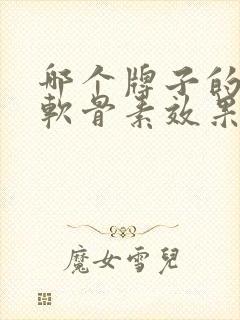 哪个牌子的
軟骨素效果
魔女雪兒